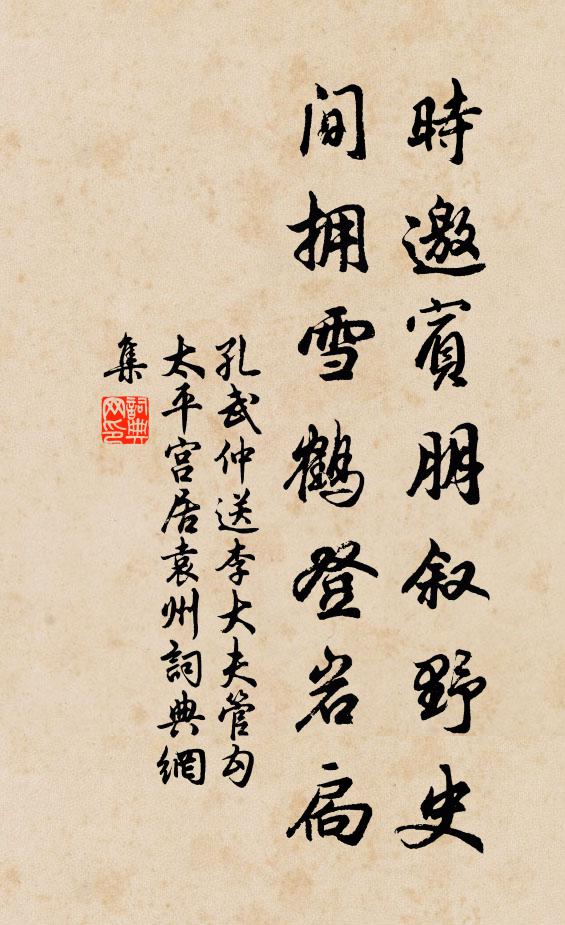 時邀賓朋叙野史
間拥雪鶴登岩扃
孔武仲送李大夫管勾
太平宮居袁州詞典網
集
詞典網印